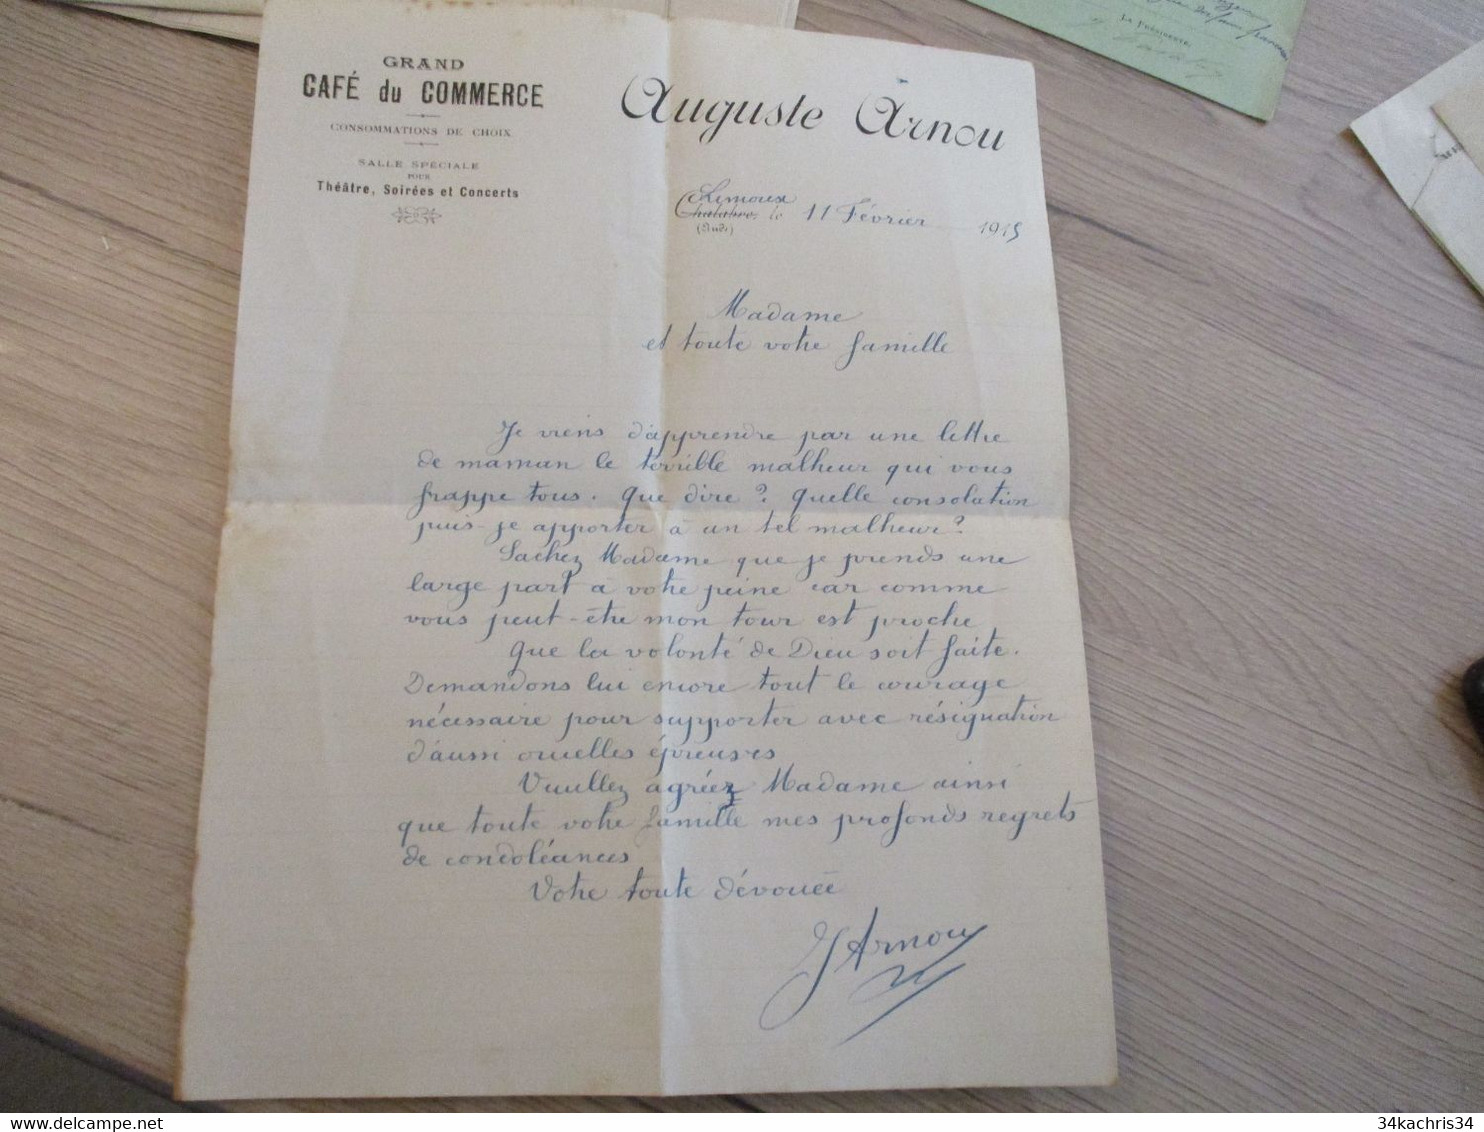 GRAND
CAFÉ du COMMERCE
CONSOMMATIONS DE CHOIX
SALLE SPÉCIALE
POUR
Théâtre, Soirées et Concerts
Auguste Arnou
Limoux
Chalabre, le 11 Février 1915
(Aude)
Madame
et toute votre famille
Je viens d'apprendre par une lettre
de maman le terrible malheur qui vous
frappe tous. Que dire ? Quelle consolation
puis-je apporter à un tel malheur ?
Sachez Madame que je prends une
large part à votre peine car comme
vous peut-être mon tour est proche
Que la volonté de Dieu soit faite.
Demandons lui encore tout le courage
nécessaire pour supporter avec résignation
d'aussi cruelles épreuves
Veuillez agréez Madame ainsi
que toute votre famille mes profonds regrets
de condoléances
Votre toute dévouée
J Arnou
La Présidente,
34kachris34